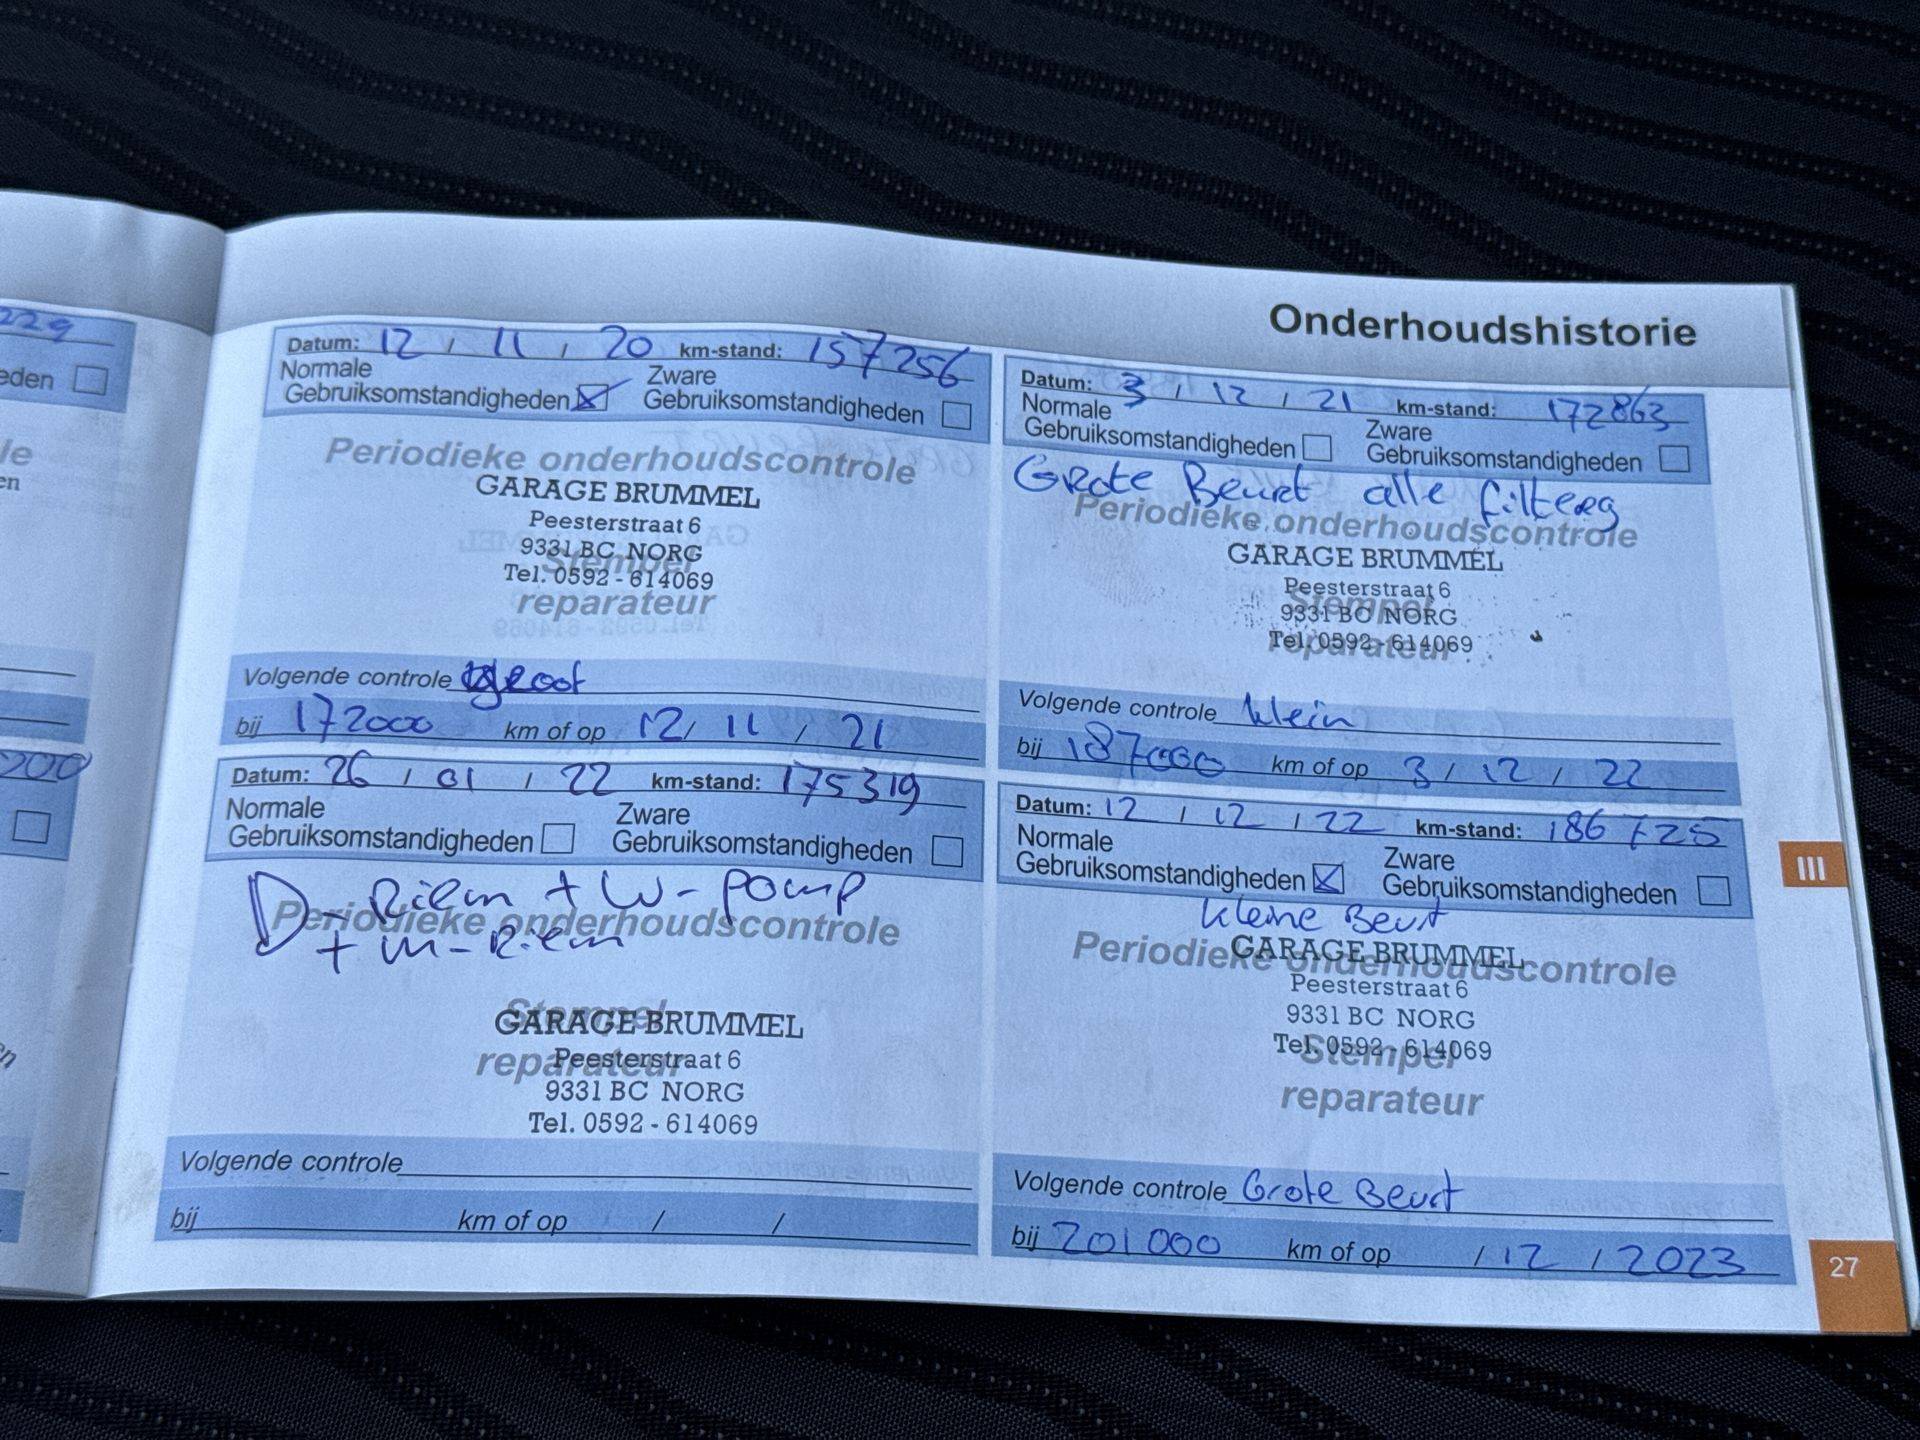 Onderhoudshistorie
229
eden
200
Datum: 12 / 11 / 20 km-stand: 157256
Normale Gebruiksomstandigheden Zware Gebruiksomstandigheden
Periodieke onderhoudscontrole
GARAGE BRUMMEL
Peesterstraat 6
9331 BC NORG
Stempel
Tel. 0592 - 614069
reparateur
Volgende controle groot
bij 172000 km of op 12 / 11 / 21
Datum: 3 / 12 / 21 km-stand: 172863
Normale Gebruiksomstandigheden Zware Gebruiksomstandigheden
Grote Beurt alle filters
Periodieke onderhoudscontrole
GARAGE BRUMMEL
Peesterstraat 6
Stempel
9331 BC NORG
Tel. 0592 - 614069
reparateur
Volgende controle klein
bij 187000 km of op 3 / 12 / 22
Datum: 26 / 01 / 22 km-stand: 175319
Normale Gebruiksomstandigheden Zware Gebruiksomstandigheden
D-Riem + W-pomp
Periodieke onderhoudscontrole
+ M-Riem
Stempel
GARAGE BRUMMEL
reparateur
Peesterstraat 6
9331 BC NORG
Tel. 0592 - 614069
Volgende controle
bij km of op / /
Datum: 12 / 12 / 22 km-stand: 186725
Normale Gebruiksomstandigheden Zware Gebruiksomstandigheden
kleine Beurt
GARAGE BRUMMEL
Periodieke onderhoudscontrole
Peesterstraat 6
9331 BC NORG
Tel. 0592 - 614069
Stempel
reparateur
Volgende controle Grote Beurt
bij 201000 km of op / 12 / 2023
III
27